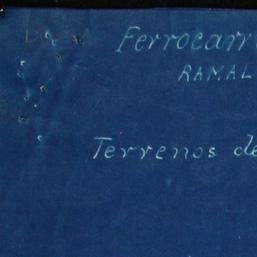 Ferrocarr
RAMAL
Terrenos de